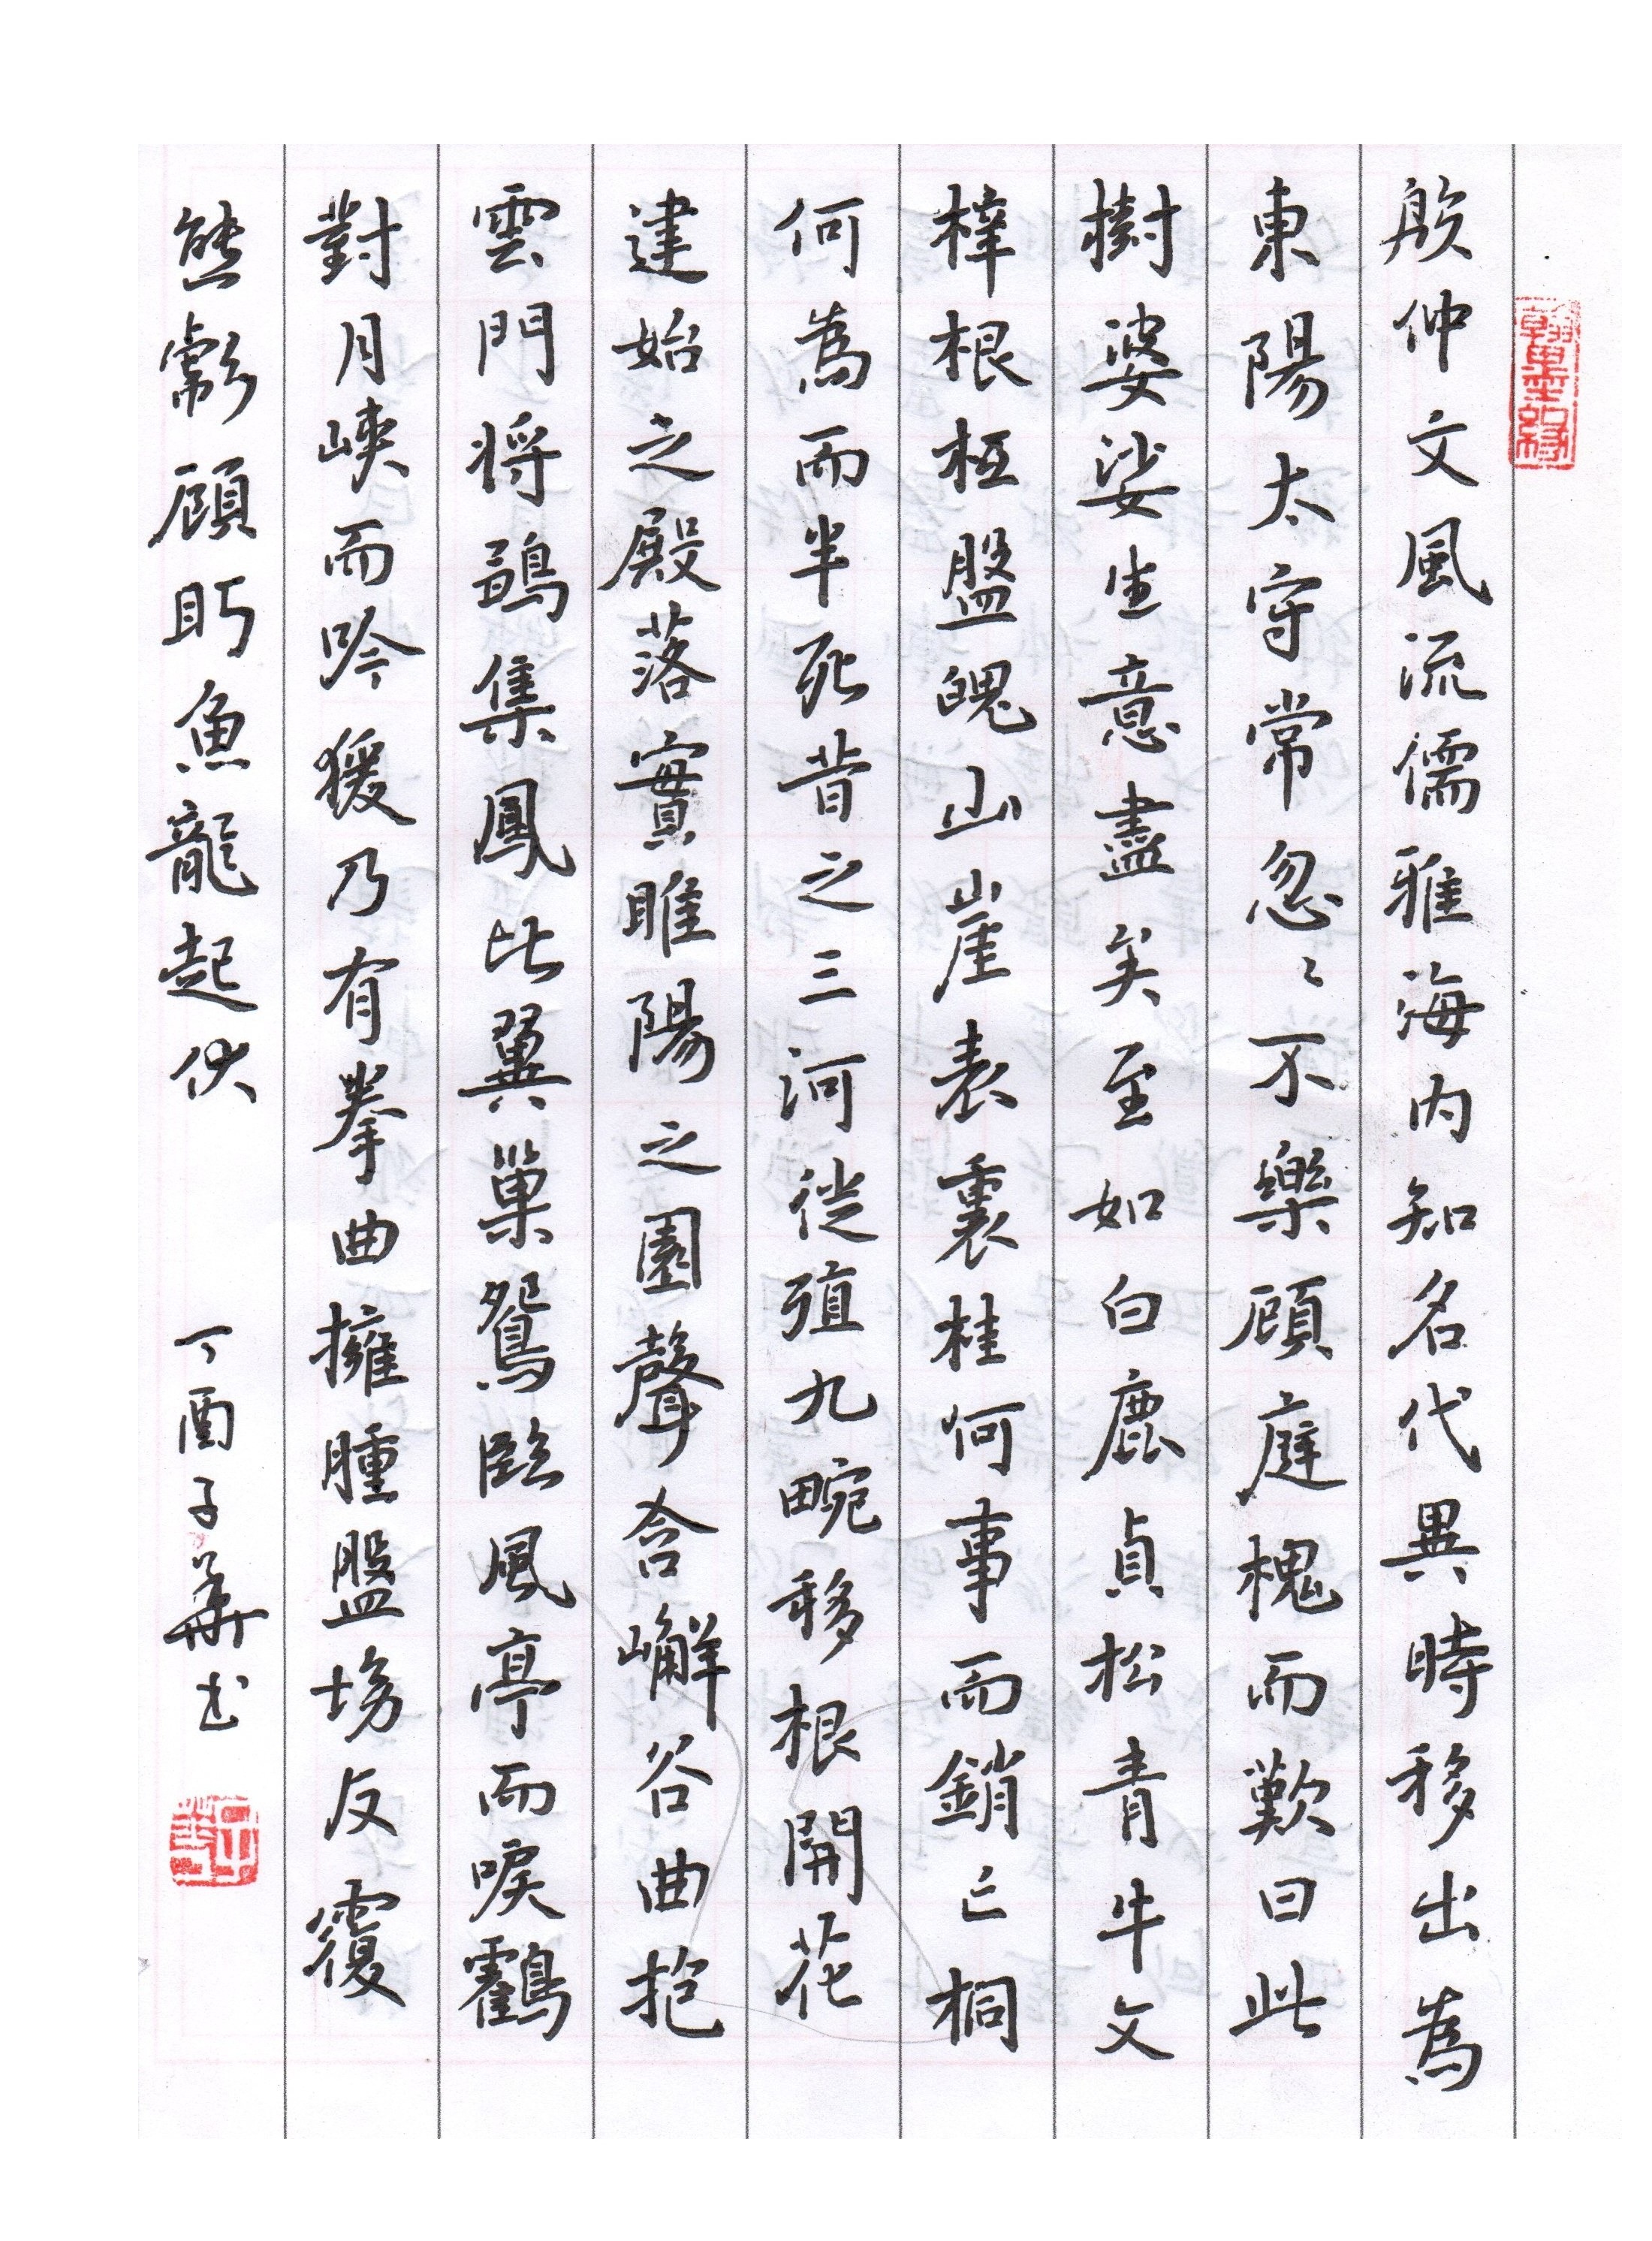 殷仲文風流儒雅海内知名代異時移出為
東陽太守常忽〻不樂顧庭槐而歎曰此
樹婆娑生意盡矣至如白鹿貞松青牛文
梓根柢盤魄山崖表裏桂何事而銷亡桐
何為而半死昔之三河徙殖九畹移根開花
建始之殿落實睢陽之園聲含嶰谷曲抱
雲門将鶵集鳳比翼巢鴛臨風亭而唳鶴
對月峽而吟猨乃有拳曲擁腫盤坳反覆
熊彪顧盻魚龍起伏
丁酉子華书